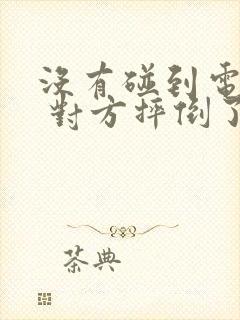 沒有碰到電
對方摔倒了
茶典